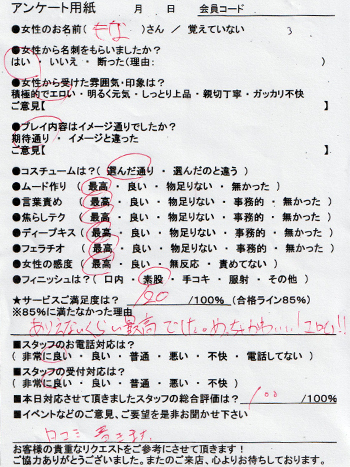 アンケート用紙　月　日　会員コード
●女性のお名前( もな )さん / 覚えていない 3
●女性から名刺をもらいましたか?
はい ・ いいえ ・ 断った(理由: )
●女性から受けた雰囲気・印象は?
積極的でエロい ・ 明るく元気 ・ しっとり上品 ・ 親切丁寧 ・ ガッカリ不快
ご意見【
●プレイ内容はイメージ通りでしたか?
期待通り ・ イメージと違った
ご意見【
●コスチュームは?( 選んだ通り ・ 選んだのと違う )
●ムード作り ( 最高 ・ 良い ・ 物足りない ・ 無かった )
●言葉責め ( 最高 ・ 良い ・ 物足りない ・ 事務的 ・ 無かった )
●焦らしテク ( 最高 ・ 良い ・ 物足りない ・ 事務的 ・ 無かった )
●ディープキス ( 最高 ・ 良い ・ 物足りない ・ 事務的 ・ 無かった )
●フェラチオ ( 最高 ・ 良い ・ 物足りない ・ 事務的 ・ 無かった )
●女性の感度 ( 最高 ・ 良い ・ 無反応 ・ 責めてない )
●フィニッシュは?( 口内 ・ 素股 ・ 手コキ ・ 服射 ・ その他 )
★サービスご満足度は? /100% (合格ライン85%)
※85%に満たなかった理由
ありえないくらい最高でした。
■スタッフのお電話対応は?
( 非常に良い ・ 良い ・ 普通 ・ 悪い ・ 不快 ・ 電話してない )
■スタッフの受付対応は?
( 非常に良い ・ 良い ・ 普通 ・ 悪い ・ 不快 )
■本日対応させて頂きましたスタッフの総合評価は? 100 /100%
■イベントなどのご意見、ご要望を是非お聞かせ下さい
口コミ 書きます。
お客様の貴重なリクエストをご参考にさせて頂きます!
ご協力ありがとうございました。またのご来店、心よりお待ちしております。